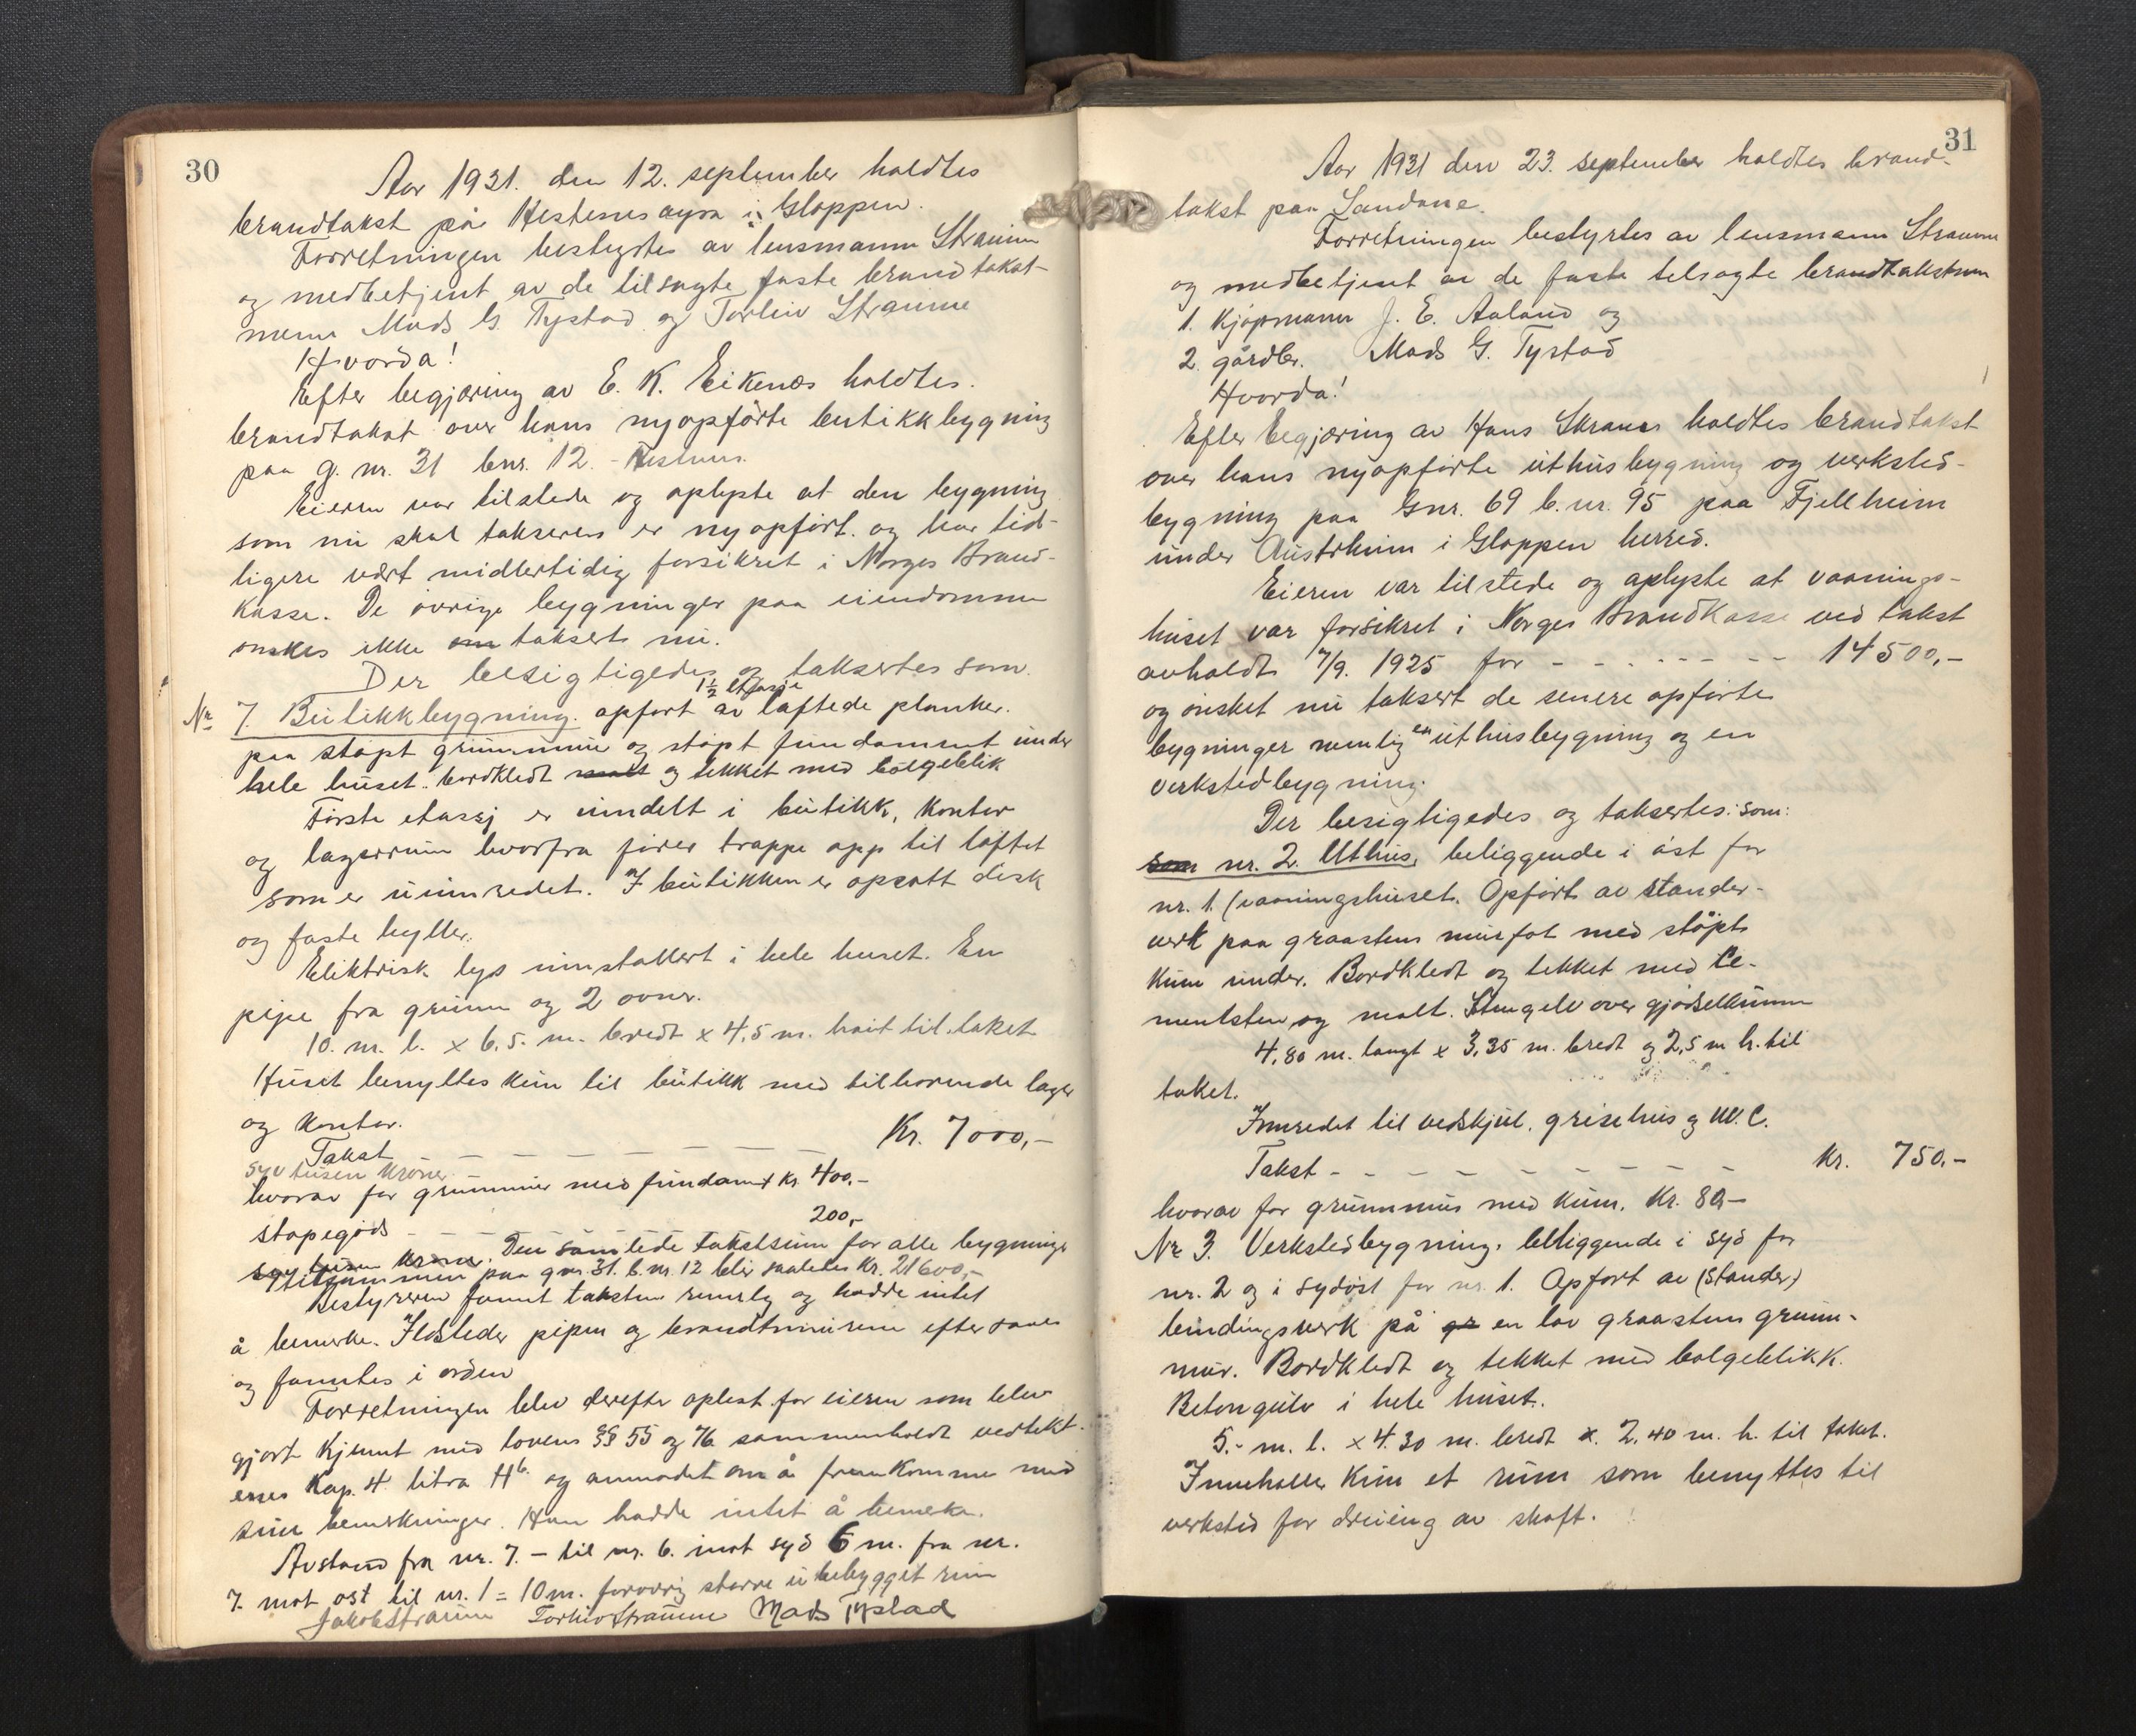 30
Aar 1931. den 12. september holdtes
brandtakst på Hestenesøyra i Gloppen.
Forretningen bestyrtes av lensmann Straume
og medbetjent av de tilsagte faste brandtakst-
menn Mads G. Tystad og Torleiv Straume
Hvorda!
Efter begjæring av E. K. Eikenæs holdtes.
brandtakst over hans nyopførte butikkbygning
paa g. nr. 31 bnr. 12. -
Eieren var tilstede og oplyste at den bygning
som nu skal takseres er nyopført. og har tid-
ligere vært midlertidig forsikret i Norges Brand-
kasse. De øvrige bygninger paa eiendommen
ønskes ikke om taksert nu.
Der besigtigedes og taksertes som.
1½ etasje
Nr. 7. Butikkbygning. opført av laftede planker.
paa støpt grunnmur og støpt fundament under
hele huset. bordkledt malt og tekket med bølgeblik
Første etasj er inndelt i butikk, kontor
og lagerrum hvorfra fører trappe opp til loftet
som er uinnredet. I butikken er opsatt disk
og faste hyller.
Elektrisk lys innstallert i hele huset. En
pipe fra grunn og 2 ovner.
10. m. l. x 6,5. m. bredt x 4,5 m. høit til taket
Huset benyttes kun til butikk med tilhørende lager
og kontor.
Takst — — — — — — Kr. 7000,-
syv tusen kroner. -
hvorav for grunnmur med fundamt kr. 400,-
støpegods - - - - - 200,-
syv tusen kroner. Den samlede takstsum for alle bygninger
tilsammen paa gnr. 31. b. nr. 12 blir saaledes Kr. 21600,-
Bestyreren fannt taksten rimelig og hadde intet
å bemerke. Ildsteder pipen og brandtmurene eftersaaes
og fanntes i orden
Forretningen blev derefter oplest for eieren som blev
gjort kjennt med lovens §§ 55 og 76 sammenholdt vedtekt-
enes Kap. 4 litra H6. og anmodet om å fremkomme med
sine bemerkninger. Han hadde intet å bemerke.
Avstand fra nr. 7. - til nr. 6. mot syd 6 m. fra nr.
7. mot ost til nr. 1 = 10 m. forøvrig større ubebygget rum
Jakob Straume Torleiv Straume Mads Tystad
31
Aar 1931 den 23. september holdtes brand-
takst paa Sandane.
Forretningen bestyrtes av lensmann Straume
og medbetjent av de faste tilsagte brandtakstmenn
1. Kjøpmann J. E. Aaland og
2. gårdbr. Mads G. Tystad
Hvorda!
Efter begjæring av Hans holdtes brandtakst
over hans nyopførte uthusbygning og verksted-
bygning paa Gnr. 69 b. nr. 95 paa Fjellheim
under Austrheim i Gloppen herred.
Eieren var tilstede og oplyste at vaanings-
huset var forsikret i Norges Brandkasse ved takst
avholdt 7/9. 1925 for - - - - - - - - 14500,-
og ønsket nu taksert de senere opførte
bygninger nemlig en uthusbygning og en
verkstedbygning.
Der besigtigedes og taksertes: som:
som nr. 2. Uthus, beliggende i øst for
nr. 1. (vaaningshuset. Opført av stander-
verk paa graastens murfot med støpt
kum under. Bordkledt og tekket med ce-
mentsten og malt. Stengolv over gjødselkummen
4,80 m. langt x 3,35 m. bredt og 2,5 m h. til
taket.
Innredet til vedskjul. grisehus og W. C.
Takst - - - - - - - - - Kr. 750.-
hvorav for grunnmur med kum. Kr. 80,-
Nr 3. Verkstedbygning. beliggende i syd for
nr. 2 og i sydøst for nr. 1. Opført av (stander)
bindingsverk på gr en lav graastens grunn-
mur. Bordkledt og tekket med bølgeblikk.
Betongulv i hele huset.
5.- m. l. x 4.30 m. bredt x. 2,40 m. h. til taket.
Inneholler kun et rum som benyttes til
verksted for dreieing av skaft.